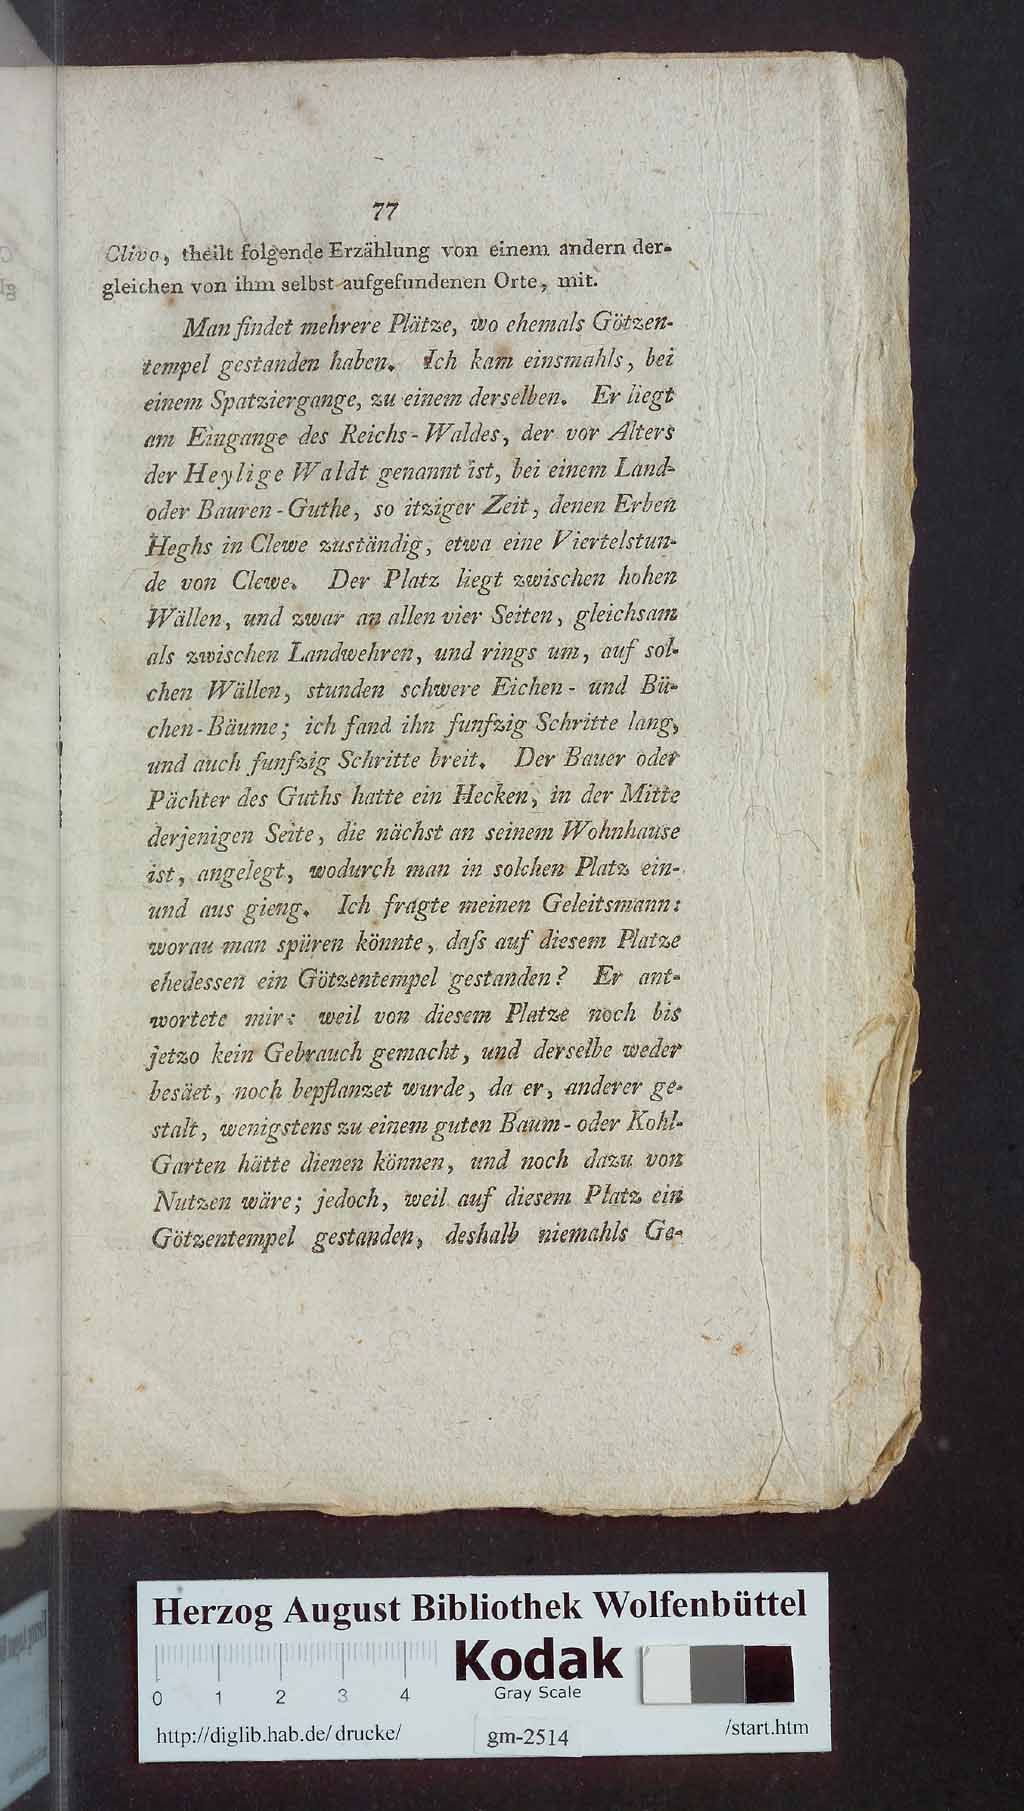 77
Clivo, theilt folgende Erzählung von einem andern der-
gleichen von ihm selbst aufgefundenen Orte, mit.
Man findet mehrere Plätze, wo ehemals Götzen-
tempel gestanden haben. Ich kam einsmahls, bei
einem Spatziergange, zu einem derselben. Er liegt
am Eingange des Reichs-Waldes, der vor Alters
der Heylige Waldt genannt ist, bei einem Land-
oder Bauren-Guthe, so itziger Zeit, denen Erben
Heghs in Clewe zuständig, etwa eine Viertelstun-
de von Clewe. Der Platz liegt zwischen hohen
Wällen, und zwar an allen vier Seiten, gleichsam
als zwischen Landwehren, und rings um, auf sol-
chen Wällen, stunden schwere Eichen- und Bü-
chen-Bäume; ich fand ihn funfzig Schritte lang,
und auch funfzig Schritte breit. Der Bauer oder
Pächter des Guths hatte ein Hecken, in der Mitte
derjenigen Seite, die nächst an seinem Wohnhause
ist, angelegt, wodurch man in solchen Platz ein-
und aus gieng. Ich fragte meinen Geleitsmann:
worau man spüren könnte, daſs auf diesem Platze
ehedessen ein Götzentempel gestanden? Er ant-
wortete mir: weil von diesem Platze noch bis
jetzo kein Gebrauch gemacht, und derselbe weder
besäet, noch bepflanzet wurde, da er, anderer ge-
stalt, wenigstens zu einem guten Baum- oder Kohl-
Garten hätte dienen können, und noch dazu von
Nutzen wäre; jedoch, weil auf diesem Platz ein
Götzentempel gestanden, deshalb niemahls Ge-
Herzog August Bibliothek Wolfenbüttel
Kodak
Gray Scale
0 1 2 3 4
http://diglib.hab.de/drucke/ gm-2514 /start.htm